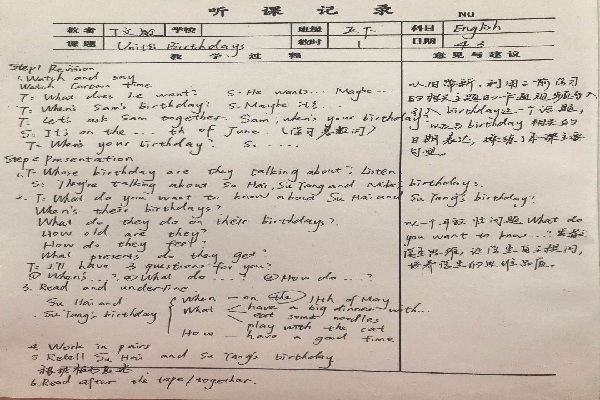 听 课 记 录
NO
教者 丁文 学校 班级 五下 科目 English
课题 Unit8 Birthdays 教时 1 日期 4.3
教 学 过 程 意 见 与 建 议
Step1 Revision
1. Watch and say
Watch Cartoon time.
T: What does he want? S: He wants... Maybe...
T: When's Sam's birthday? S: Maybe it's...
T: Let's ask Sam together. Sam, when's your birthday?
S: It's on the ... th of June. (复习序数词)
T: When's your birthday? S: ....
Step2 Presentation
1. T: Whose birthday are they talking about? Listen.
S: They're talking about Su Hai, Su Yang and Mike's birthdays.
2. T: What do you want to know about Su Hai and Su Yang's birthday?
When's their birthdays?
What do they do on their birthdays?
How old are they?
How do they feel?
What presents do they get?
T: I'll have 3 questions for you?
① When's...? ② What do ....? ③ How do ...?
3. Read and underline.
Su Hai and Su Yang's birthday
When — on the 11th of May
What have a big dinner with...
eat some noodles
play with the cat
How — have a good time
4. Work in pairs
5. Retell Su Hai and Su Yang's birthday
6. Read after the tape/together.
以旧带新,利用
的相关主题
引入 birthday 这一个话题,
birthday 相关的
日期表达,
句型。
以一个开放性问题 What do
you want to know...?
学生思维,让学生自主提问,
培养学生的思维品质。